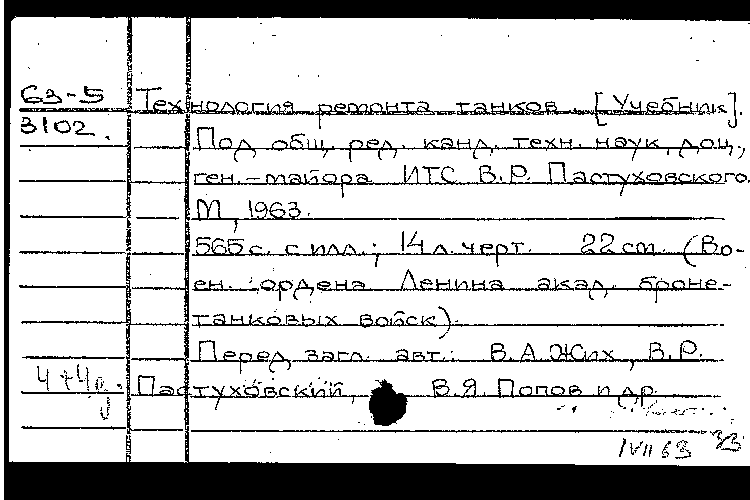 63-5 Технология ремонта танков. [Учебник].
3102. Под общ. ред. канд. техн. наук, доц.,
ген.-майора ИТС В.Р. Пастуховского
М., 1963.
565 с. с илл.; 14 л. черт. 22 см. (Во-
ен. ордена Ленина акад. броне-
танковых войск).
Перед загл. авт.: В.А. Жих, В.Р.
Пастуховский, В.Я. Попов и др.
IVII 63